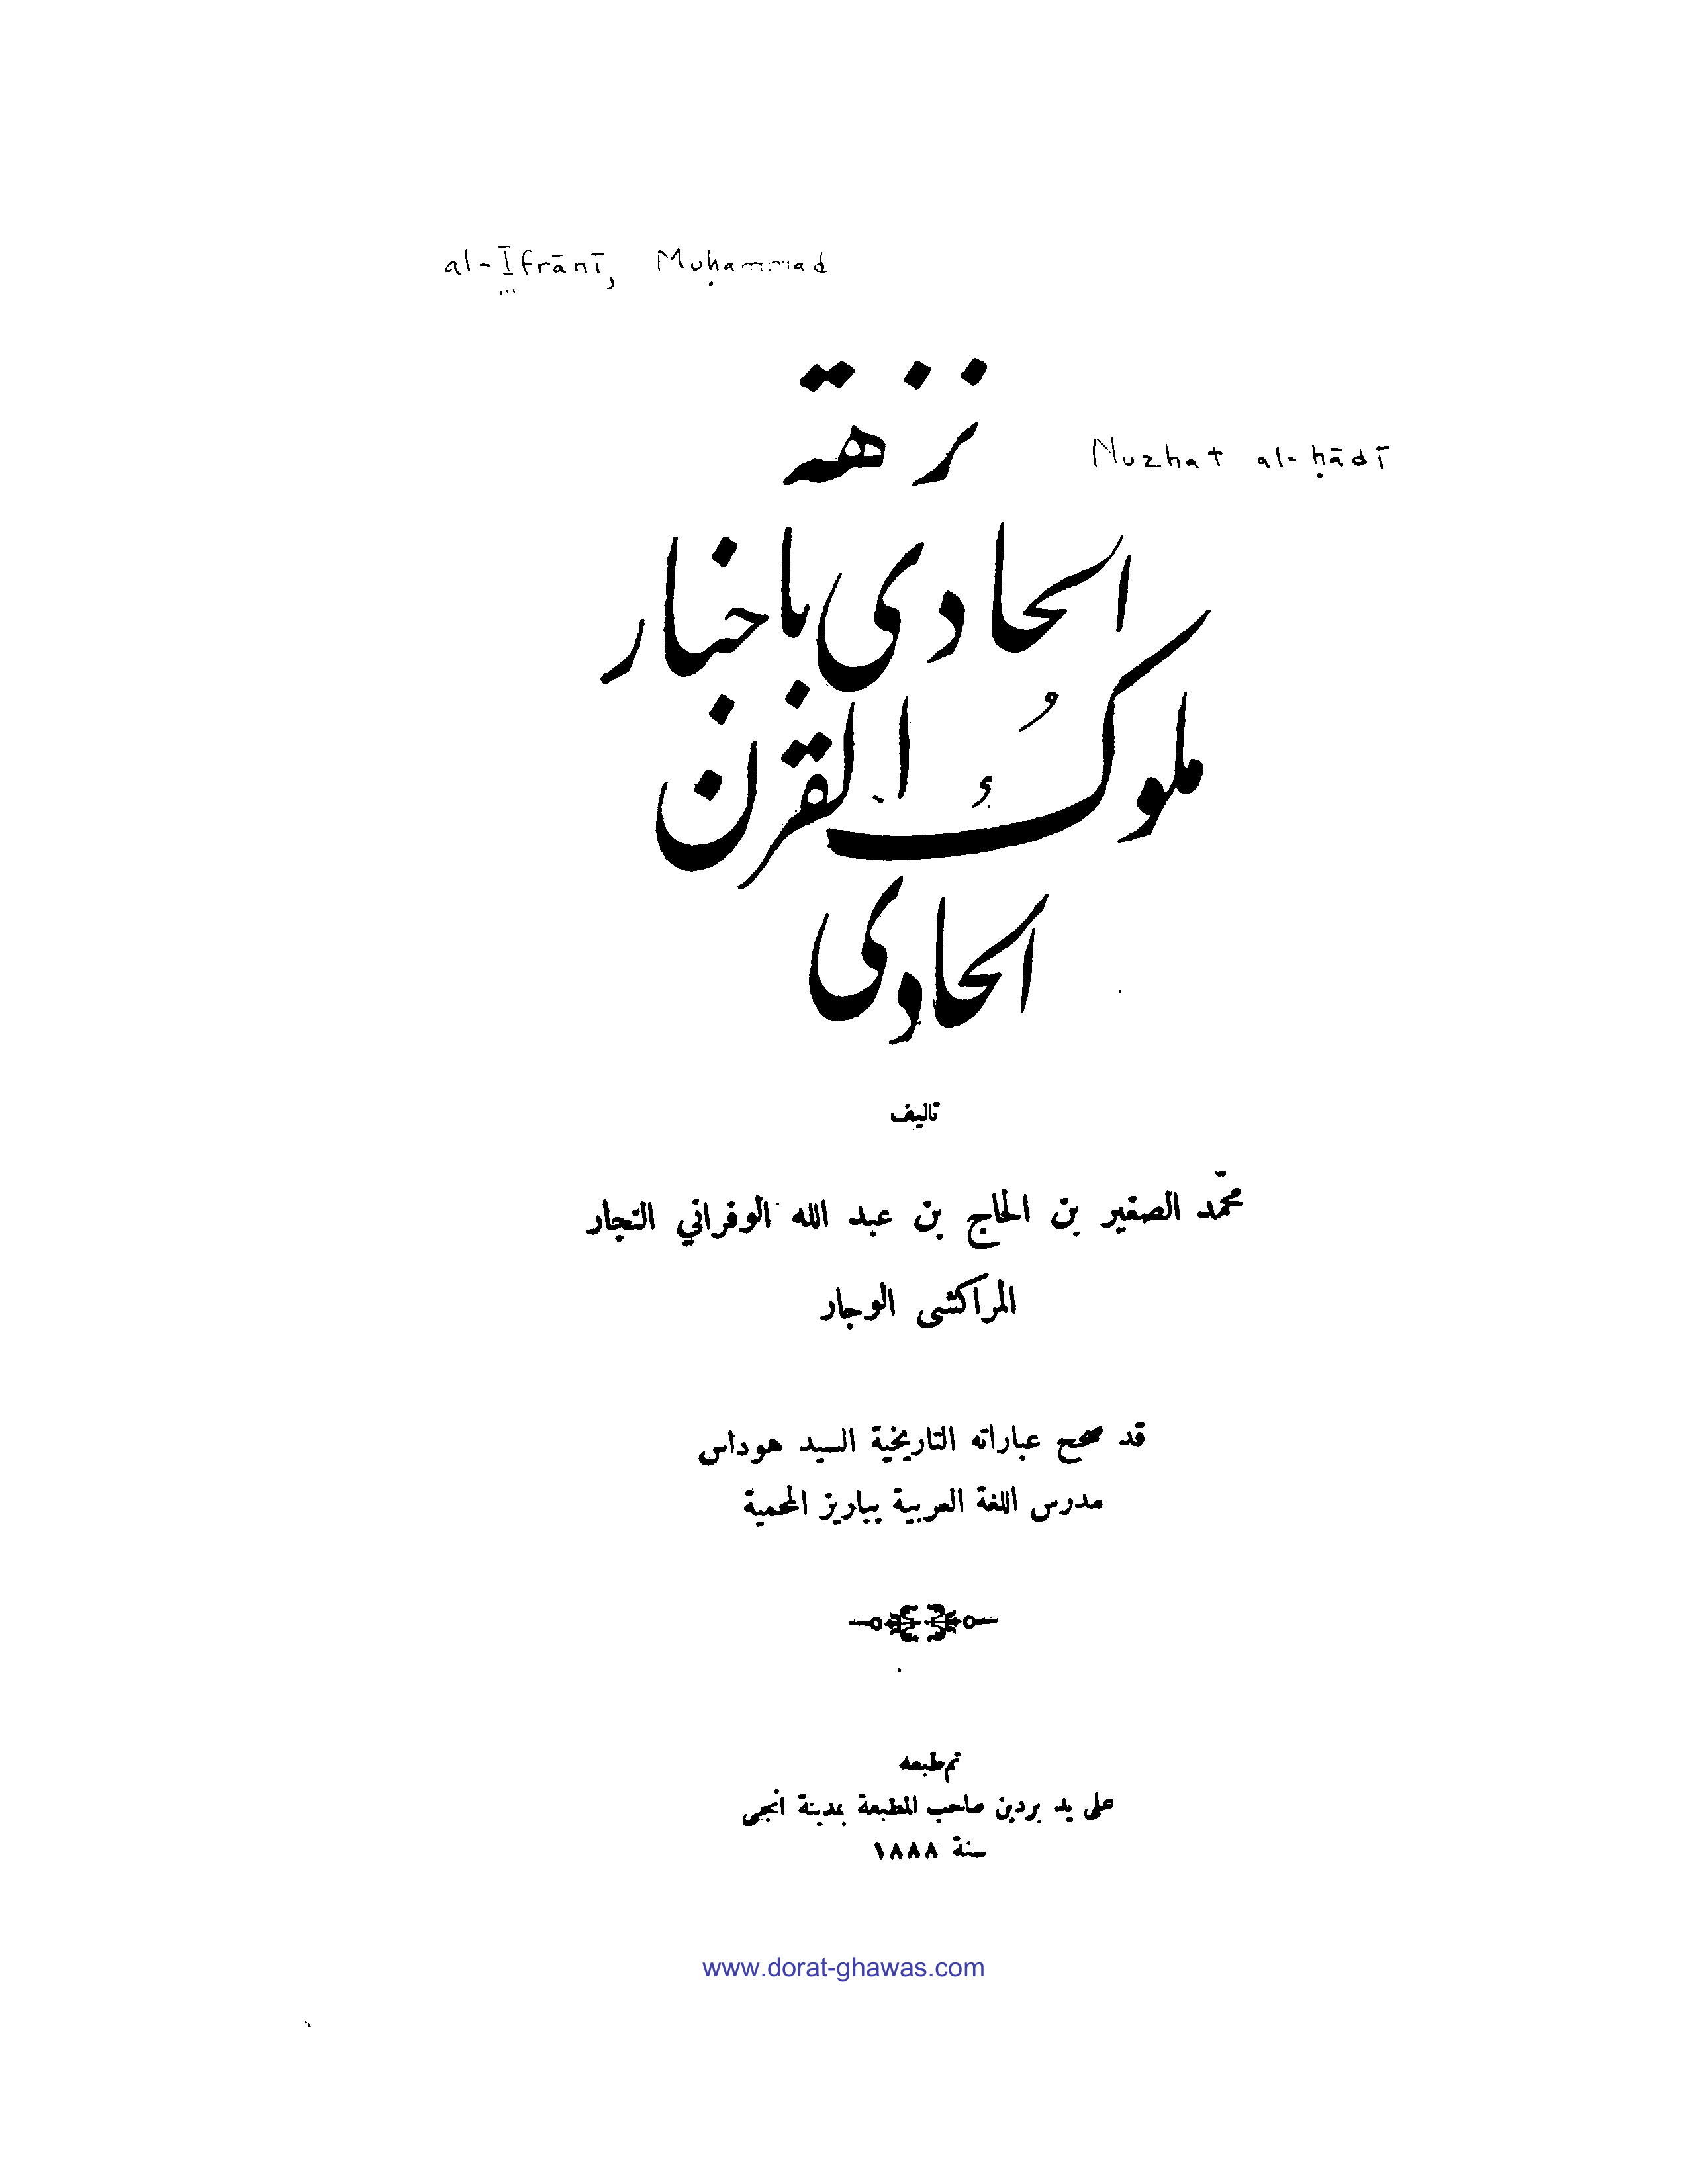 al-Īfrānī, Muḥammad
نزهة
Nuzhat al-ḥādī
الحادى باخبار
ملوك القرن
الحادى
تاليف
محمّد الصغير بن الحاج بن عبد الله الوفراني النجار
المراكشى الوجار
قد صحح عباراته التاريخية السيد هوداس
مدرس اللغة العربية بباريز المحمية
تم طبعه
على يد بردين صاحب المطبعة بمدينة انجى
سنة ١٨٨٨
www.dorat-ghawas.com